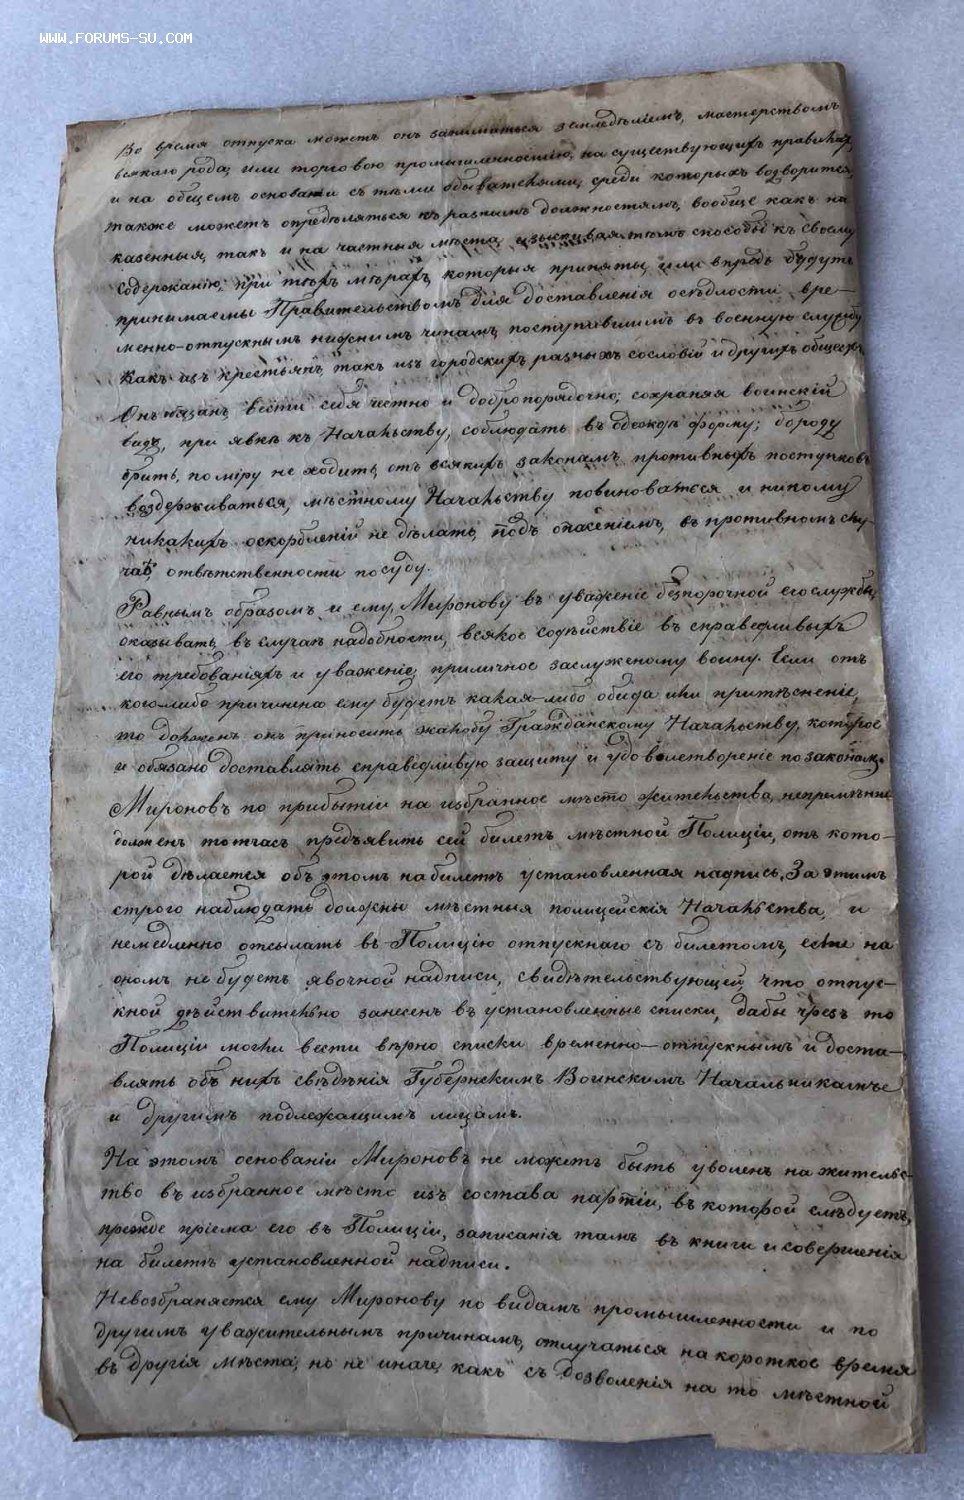 WWW.FORUMS-SU.COM
Во время отпуска можетъ онъ заниматься земледѣліемъ, мастерствомъ
всякаго рода, или торговою промышленностію, на существующихъ правилахъ
и на общемъ основаніи съ тѣми обывателями, среди которыхъ водворится,
также можетъ опредѣляться къ разнымъ должностямъ, вообще какъ на
казенныя, такъ и на частныя мѣста, изыскивая тѣмъ способы къ своему
содержанію, при тѣхъ мѣрахъ, которыя приняты, или впредь будутъ
принимаемы Правительствомъ для доставленія осѣдлости вре-
менно-отпускнымъ нижнимъ чинамъ, поступившимъ въ военную службу
какъ изъ крестьянъ, такъ изъ городскихъ разныхъ сословій и другихъ обществъ.
Онъ обязанъ вести себя честно и добропорядочно, сохраняя воинскій
видъ, при явкѣ къ Начальству, соблюдать въ одеждѣ форму; бороду
брить, по міру не ходить, отъ всякихъ законамъ противныхъ поступковъ
воздерживаться, мѣстному Начальству повиноваться и никому
никакихъ оскорбленій не дѣлать, подъ опасеніемъ, въ противномъ слу-
чаѣ, отвѣтственности по суду.
Равнымъ образомъ и ему, Миронову въ уваженіе безпорочной его службы,
оказывать, въ случаѣ надобности, всякое содѣйствіе въ справедливыхъ
его требованіяхъ и уваженіе, приличное заслуженому воину. Если отъ
кого либо причинена ему будетъ какая-либо обида или притѣсненіе,
то долженъ онъ приносить жалобу Гражданскому Начальству, которое
и обязано доставлять справедливую защиту и удовлетвореніе по законамъ.
Мироновъ по прибытіи на избранное мѣсто жительства, непремѣнно
долженъ тотчасъ предъявить сей билетъ мѣстной Полиціи, отъ кото-
рой дѣлается объ этомъ на билетѣ установленная надпись. За этимъ
строго наблюдать должны мѣстныя полицейскія Начальства, и
немедленно отсылать въ Полицію отпускнаго съ билетомъ, если на
ономъ не будетъ явочной надписи, свидѣтельствующей, что отпус-
кной дѣйствительно занесенъ въ установленные списки, дабы чрезъ то
Полиціи могли вести вѣрно списки временно-отпускнымъ и доста-
влять объ нихъ свѣдѣнія Губернскимъ Воинскимъ Начальникамъ
и другимъ подлежащимъ лицамъ.
На этомъ основаніи Мироновъ не можетъ быть уволенъ на жительс-
тво въ избранное мѣсто изъ состава партіи, въ которой слѣдуетъ,
прежде пріема его въ Полиціи, записанія тамъ въ книги и совершенія
на билетѣ установленной надписи.
Невозбраняется ему Миронову по видамъ промышленности и по
другимъ уважительнымъ причинамъ, отлучаться на короткое время
въ другія мѣста, но не иначе, какъ съ дозволенія на то мѣстной